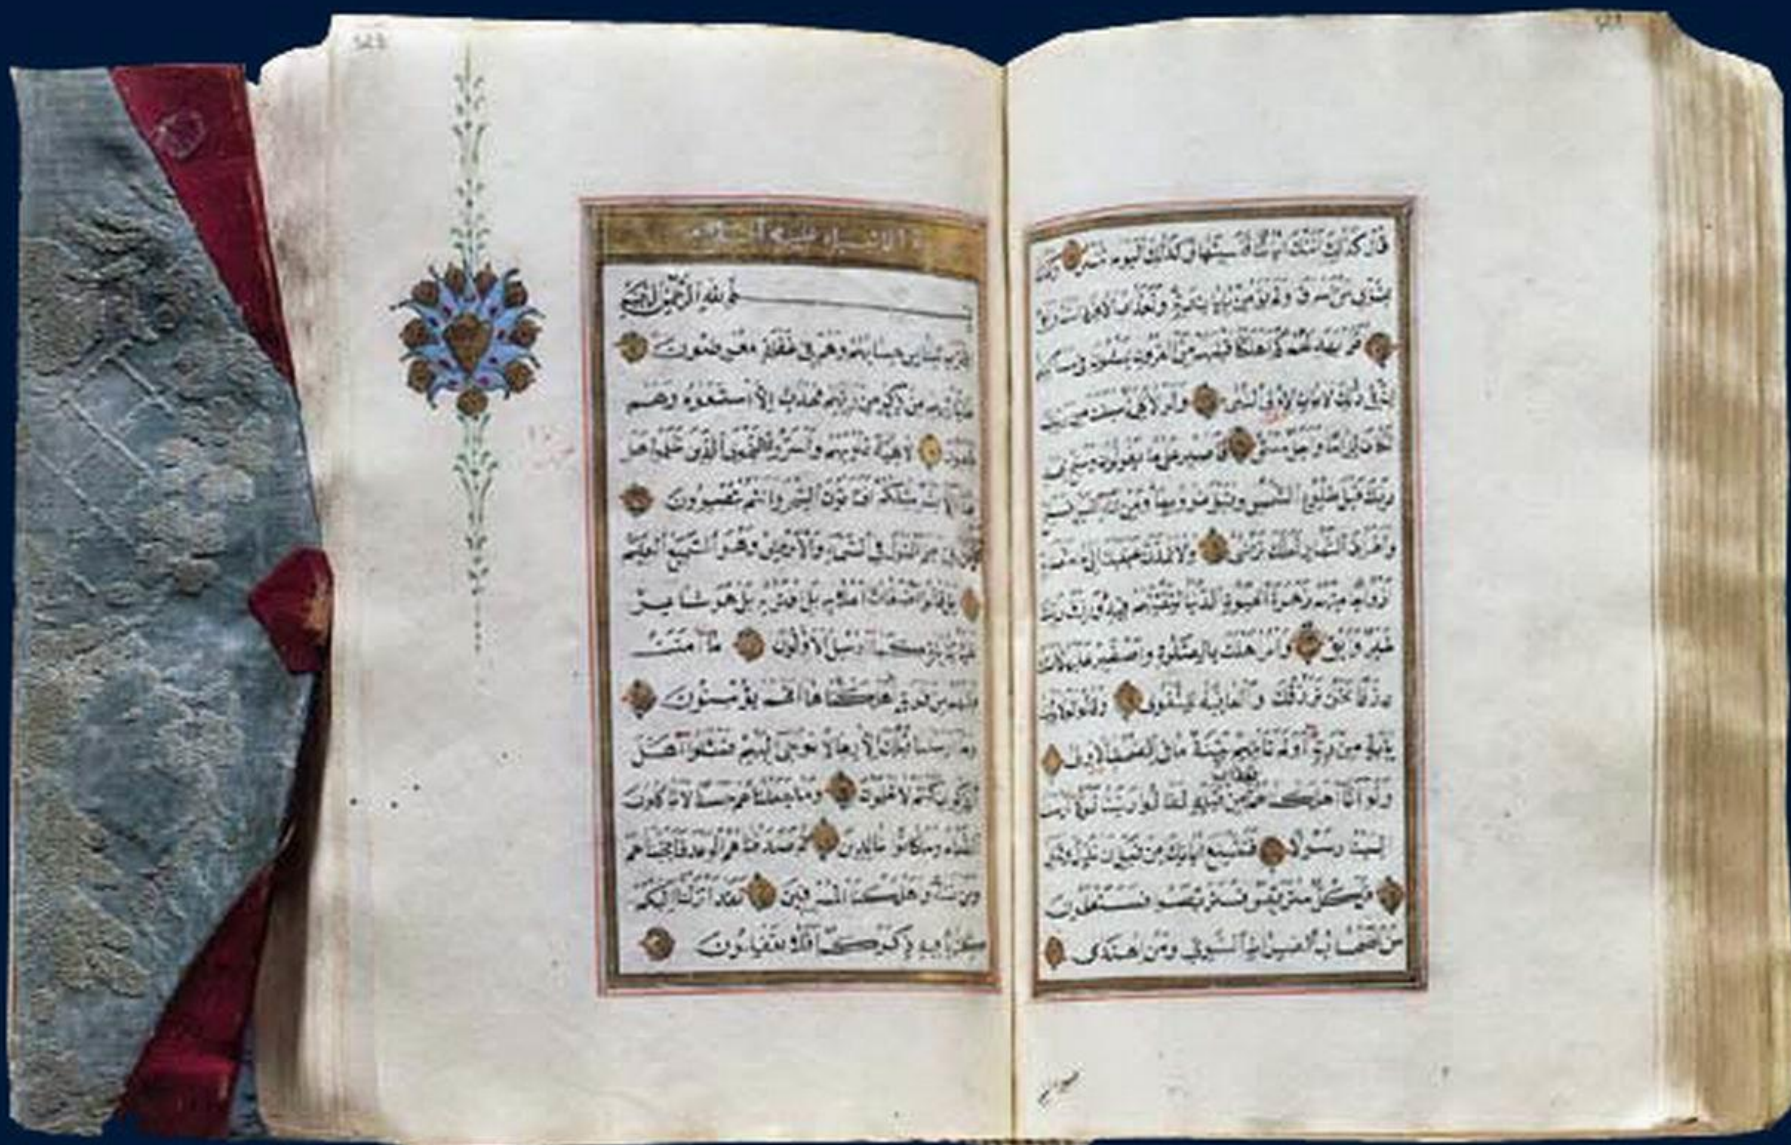 قَالَ كَذٰلِكَ اَتَتْكَ اٰيَاتُنَا فَنَسِيتَهَا وَكَذٰلِكَ الْيَوْمَ تُنْسٰى وَكَذٰلِكَ
نَجْزِي مَنْ اَسْرَفَ وَلَمْ يُؤْمِنْ بِاٰيَاتِ رَبِّهِ وَلَعَذَابُ الْاٰخِرَةِ اَشَدُّ وَاَبْقٰى
اَفَلَمْ يَهْدِ لَهُمْ كَمْ اَهْلَكْنَا قَبْلَهُمْ مِنَ الْقُرُونِ يَمْشُونَ فِي مَسَاكِنِهِمْ
اِنَّ فِي ذٰلِكَ لَاٰيَاتٍ لِاُولِي النُّهٰى وَلَوْلَا كَلِمَةٌ سَبَقَتْ مِنْ رَبِّكَ
لَكَانَ لِزَامًا وَاَجَلٌ مُسَمًّى فَاصْبِرْ عَلٰى مَا يَقُولُونَ وَسَبِّحْ بِحَمْدِ
رَبِّكَ قَبْلَ طُلُوعِ الشَّمْسِ وَقَبْلَ غُرُوبِهَا وَمِنْ اٰنَاءِ الَّيْلِ فَسَبِّحْ
وَاَطْرَافَ النَّهَارِ لَعَلَّكَ تَرْضٰى وَلَا تَمُدَّنَّ عَيْنَيْكَ اِلٰى مَا مَتَّعْنَا بِهِ
اَزْوَاجًا مِنْهُمْ زَهْرَةَ الْحَيٰوةِ الدُّنْيَا لِنَفْتِنَهُمْ فِيهِ وَرِزْقُ رَبِّكَ
خَيْرٌ وَاَبْقٰى وَأْمُرْ اَهْلَكَ بِالصَّلٰوةِ وَاصْطَبِرْ عَلَيْهَا لَا
رِزْقًا نَحْنُ نَرْزُقُكَ وَالْعَاقِبَةُ لِلتَّقْوٰى وَقَالُوا لَوْلَا
بِاٰيَةٍ مِنْ رَبِّهِ اَوَلَمْ تَأْتِهِمْ بَيِّنَةُ مَا فِي الصُّحُفِ الْاُولٰى
وَلَوْ اَنَّا اَهْلَكْنَاهُمْ بِعَذَابٍ مِنْ قَبْلِهِ لَقَالُوا رَبَّنَا لَوْلَا اَرْسَلْتَ
اِلَيْنَا رَسُولًا فَنَتَّبِعَ اٰيَاتِكَ مِنْ قَبْلِ اَنْ نَذِلَّ وَنَخْزٰى
قُلْ كُلٌّ مُتَرَبِّصٌ فَتَرَبَّصُوا فَسَتَعْلَمُونَ
مَنْ اَصْحَابُ الصِّرَاطِ السَّوِيِّ وَمَنِ اهْتَدٰى
الانبياء عليهم السلام
بسم الله الرحمن الرحيم
اِقْتَرَبَ لِلنَّاسِ حِسَابُهُمْ وَهُمْ فِي غَفْلَةٍ مُعْرِضُونَ
مَا يَأْتِيهِمْ مِنْ ذِكْرٍ مِنْ رَبِّهِمْ مُحْدَثٍ اِلَّا اسْتَمَعُوهُ وَهُمْ
يَلْعَبُونَ لَاهِيَةً قُلُوبُهُمْ وَاَسَرُّوا النَّجْوَى الَّذِينَ ظَلَمُوا هَلْ
هٰذَا اِلَّا بَشَرٌ مِثْلُكُمْ اَفَتَأْتُونَ السِّحْرَ وَاَنْتُمْ تُبْصِرُونَ
قَالَ رَبِّي يَعْلَمُ الْقَوْلَ فِي السَّمَاءِ وَالْاَرْضِ وَهُوَ السَّمِيعُ الْعَلِيمُ
بَلْ قَالُوا اَضْغَاثُ اَحْلَامٍ بَلِ افْتَرٰيهُ بَلْ هُوَ شَاعِرٌ
فَلْيَأْتِنَا بِاٰيَةٍ كَمَا اُرْسِلَ الْاَوَّلُونَ مَا اٰمَنَتْ
قَبْلَهُمْ مِنْ قَرْيَةٍ اَهْلَكْنَاهَا اَفَهُمْ يُؤْمِنُونَ
وَمَا اَرْسَلْنَا قَبْلَكَ اِلَّا رِجَالًا نُوحِي اِلَيْهِمْ فَسْئَلُوا اَهْلَ
الذِّكْرِ اِنْ كُنْتُمْ لَا تَعْلَمُونَ وَمَا جَعَلْنَاهُمْ جَسَدًا لَا يَأْكُلُونَ
الطَّعَامَ وَمَا كَانُوا خَالِدِينَ ثُمَّ صَدَقْنَاهُمُ الْوَعْدَ فَاَنْجَيْنَاهُمْ
وَمَنْ نَشَاءُ وَاَهْلَكْنَا الْمُسْرِفِينَ لَقَدْ اَنْزَلْنَا اِلَيْكُمْ
كِتَابًا فِيهِ ذِكْرُكُمْ اَفَلَا تَعْقِلُونَ